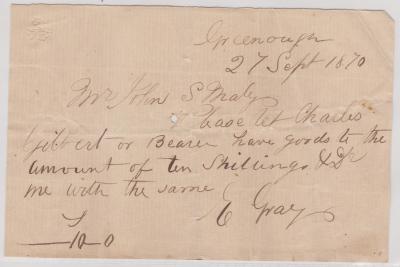 Greenough
27 Sept 1870
Mr John S Maley
Please let Charles
Gilbert or Bearer have goods to the
amount of ten Shillings & Dr
me with the same
E Gray
£
— 10 0